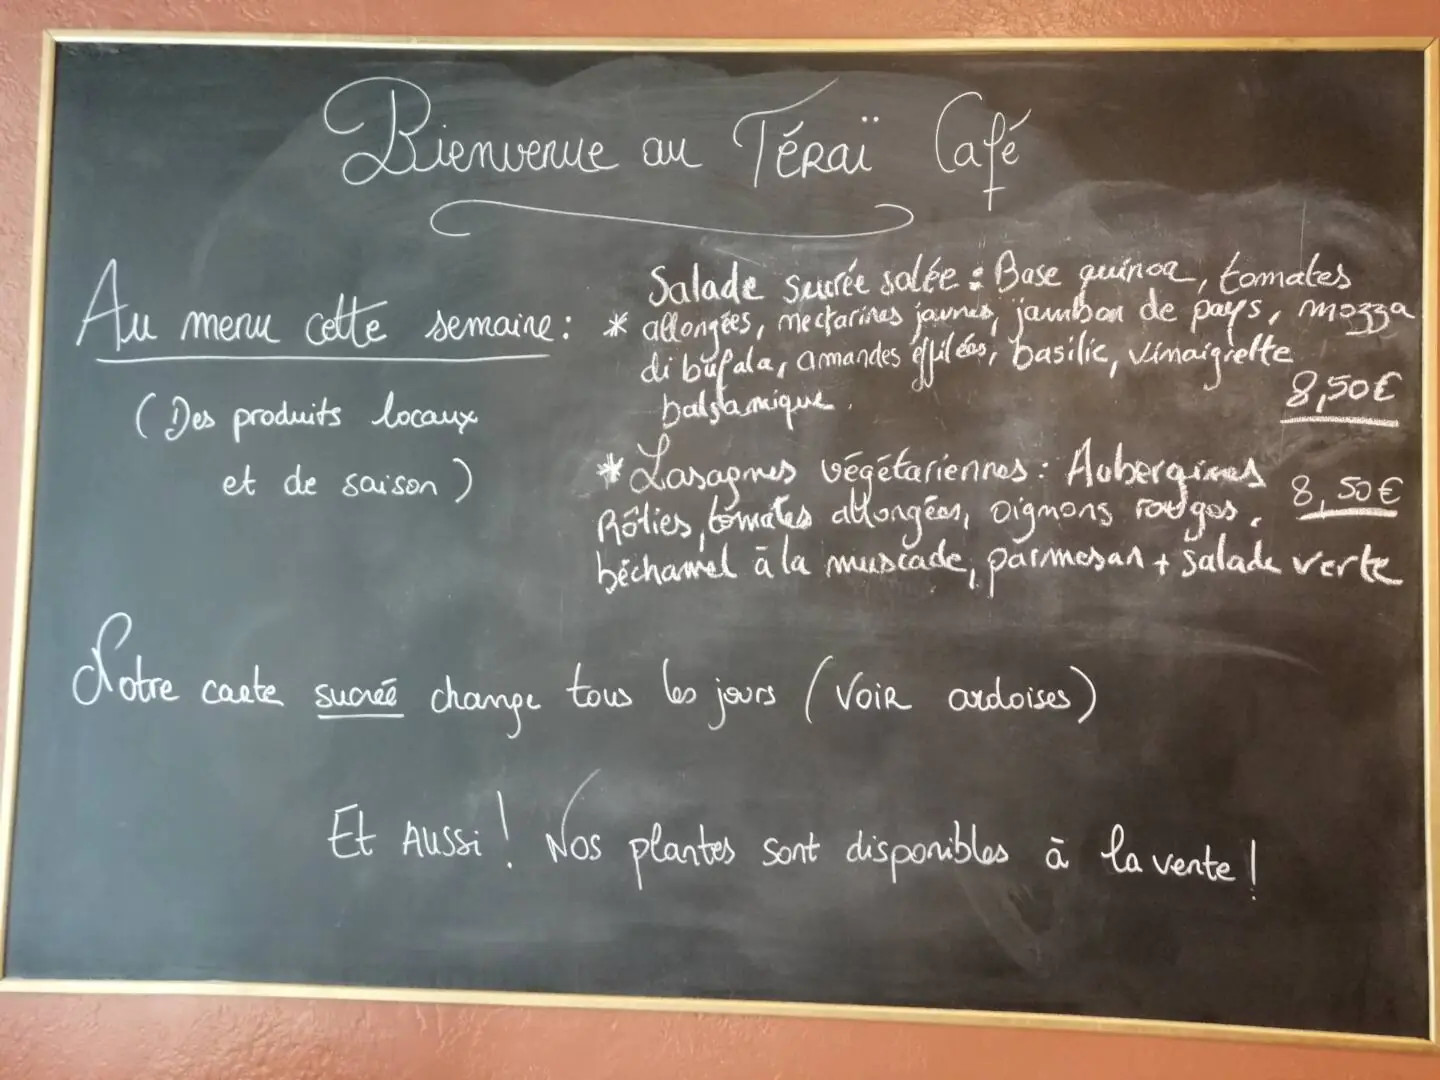 Bienvenue au Téraï Café
Au menu cette semaine :
(Des produits locaux
et de saison)
Salade sucrée salée : Base quinoa, tomates
* allongées, nectarines jaunes, jambon de pays, mozza
di bufala, amandes effilées, basilic, vinaigrette
balsamique.
8,50€
* Lasagnes végétariennes : Aubergines
8,50€
Rôties, tomates allongées, oignons rouges,
béchamel à la muscade, parmesan + salade verte
Notre carte sucrée change tous les jours (Voir ardoises)
Et Aussi ! Nos plantes sont disponibles à la vente !